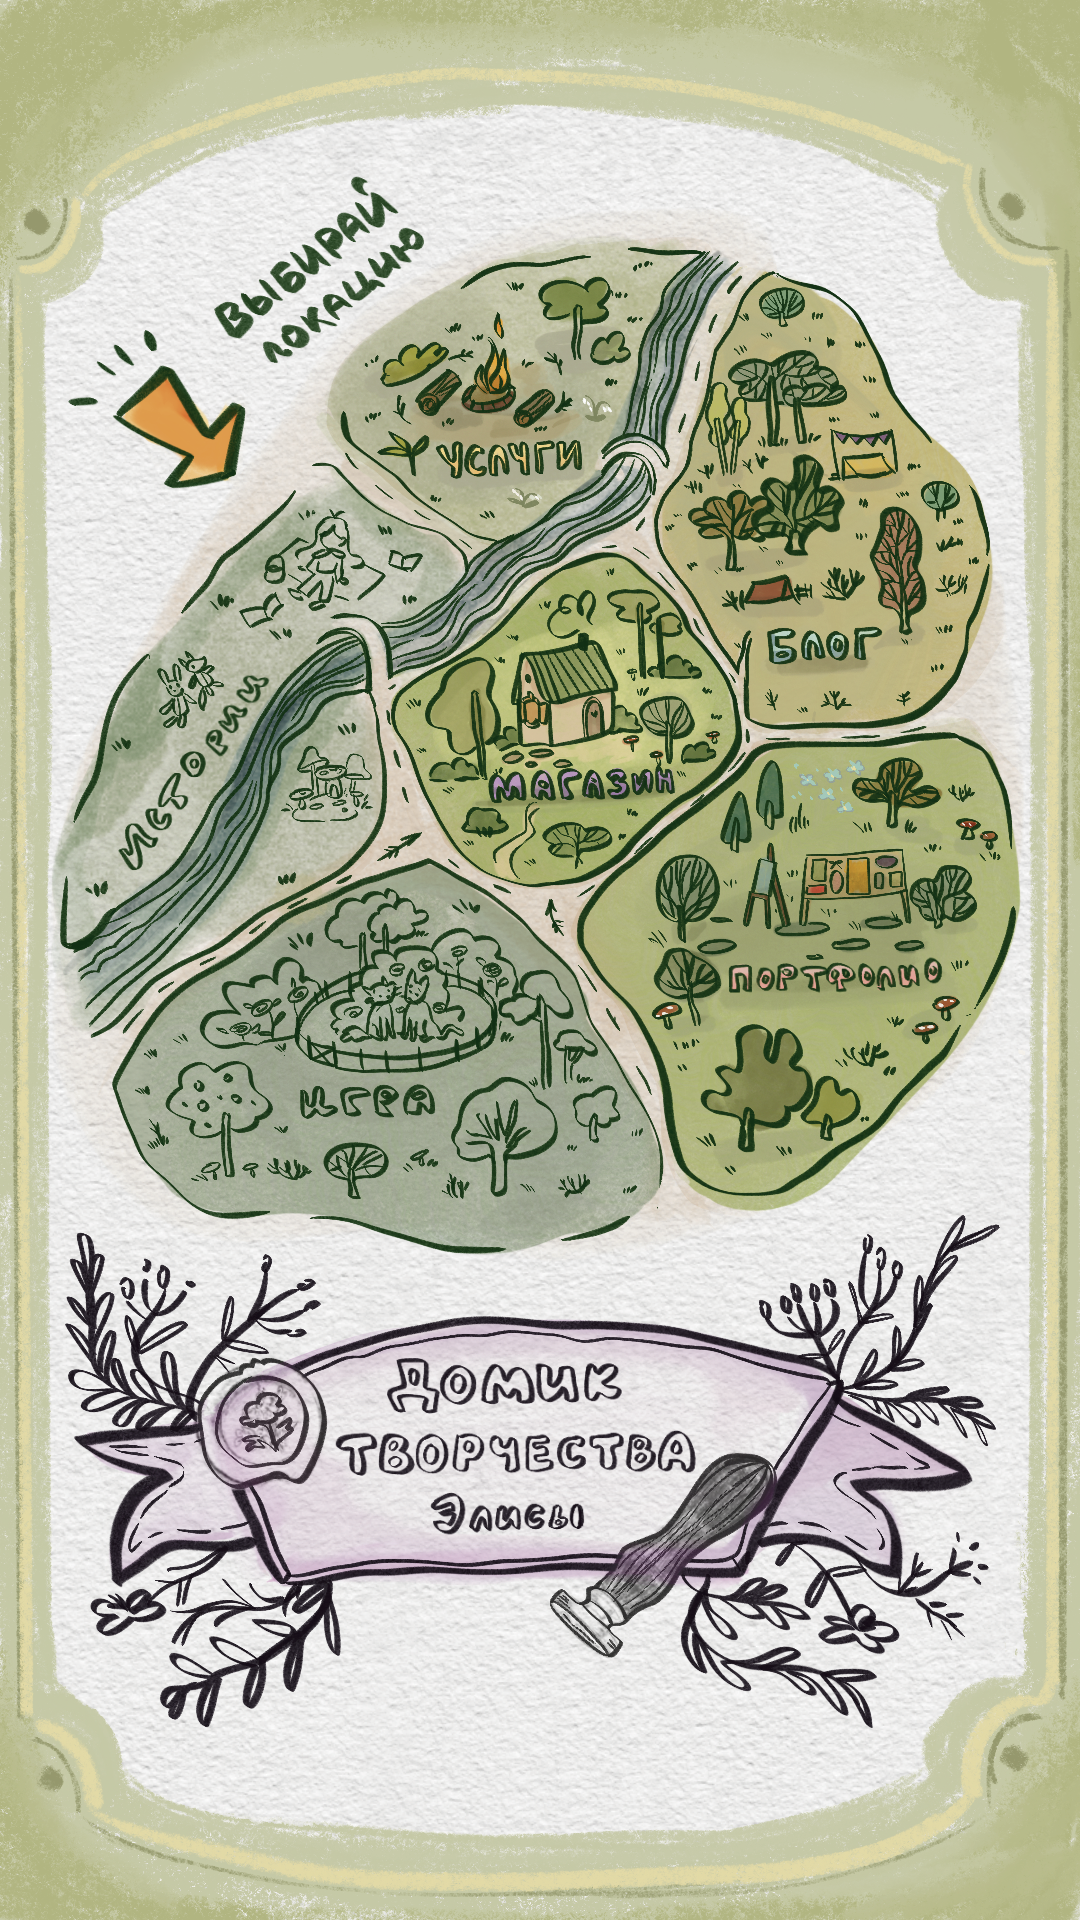 ВЫБИРАЙ
ЛОКАЦИЮ
УСЛУГИ
БЛОГ
ИСТОРИИ
МАГАЗИН
ПОРТФОЛИО
ИГРА
ДОМИК
ТВОРЧЕСТВА
Элисы